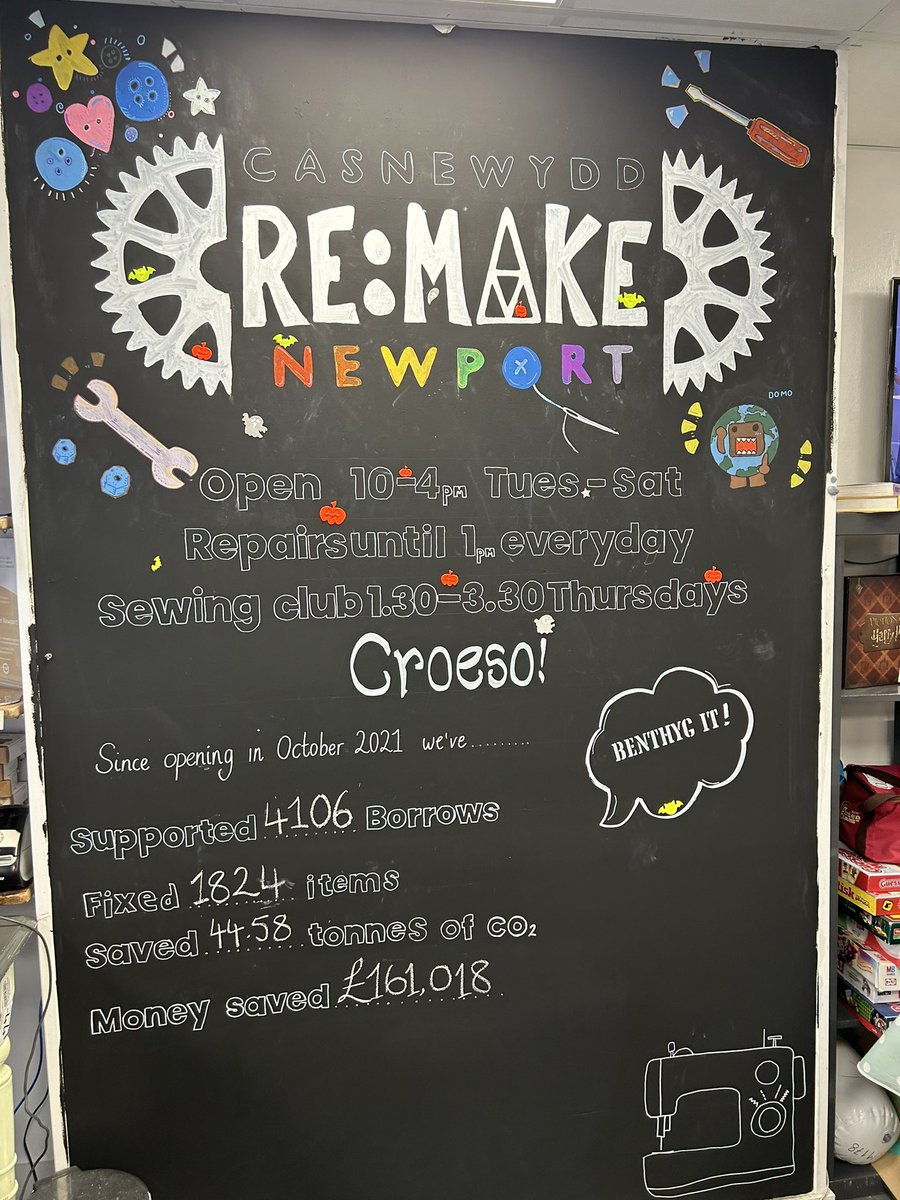 CASNEWYDD
RE:MAKE
NEWPORT
DOMO
Open 10-4pm Tues.-Sat
Repairs until 1pm everyday
Sewing club 1.30-3.30 Thursdays
Croeso!
BENTHYG IT!
Since opening in October 2021 we've.........
Supported 4106 Borrows
Fixed 1824 items
Saved 44.58 tonnes of CO₂
Money saved £161,018
Harry
Guess
Risk
MB